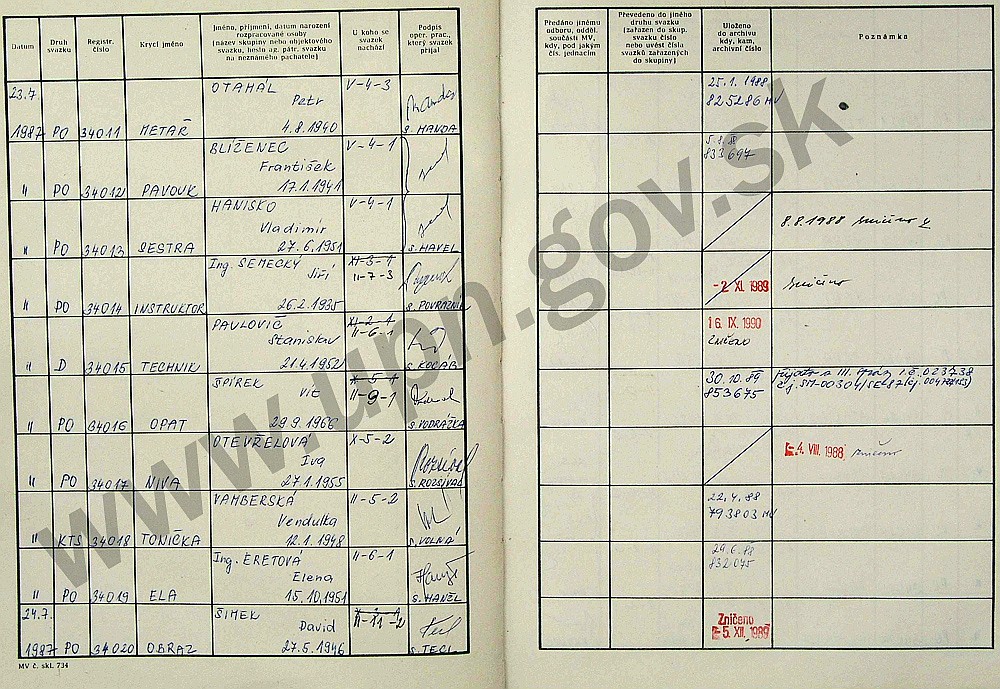 Datum
Druh svazku
Registr. číslo
Krycí jméno
Jméno, příjmení, datum narození
rozpracované osoby
(název skupiny nebo objektového
svazku, heslo ag. pátr. svazku
na neznámého pachatele)
U koho se
svazek
nachází
Podpis
oper. prac.,
který svazek
přijal
Předáno jinému
odboru, odděl.
součásti MV,
kdy, pod jakým
čís. jednacím
Převedeno do jiného
druhu svazku
(zařazen do skup.
svazku číslo
nebo uvést čísla
svazků zařazených
do skupiny)
Uloženo
do archivu
kdy, kam,
archivní číslo
Poznámka
23.7. OTAHÁL V-4-3 25.1.1988
Petr 825286 MV
1987 PO 34011 METAŘ 4.8.1940 S. HANDA
BLÍŽENEC V-4-1 5.8.88
František 833697
" PO 34012 PAVOUK 17.1.1941
HANISKO V-4-1
Vladimír 8.8.1988 zničeno
" PO 34013 SESTRA 27.6.1951 S. HAVEL
Ing. SEMECKÝ XI-3-1
Jiří II-7-3 -2. XI. 1989 zničeno
" PO 34014 INSTRUKTOR 26.2.1935 S. POVRAZNÍK
PAVLOVIC XI-2-1 16. IX. 1990
Stanislav II-6-1 zničeno
" D 34015 TECHNIK 21.4.1952 S. KOCÁB
ŠPÍREK X-5-1 30.10.89
Vít II-9-1 853675
" PO 34016 OPAT 29.9.1966 S. VODRÁŽKA
OTEVŘELOVÁ X-5-2
Iva -4. VIII. 1988 zničeno
" PO 34017 NIVA 27.1.1955 S. ROZSÍVAL
VAMBERSKÁ II-5-2 22.4.88
Vendulka 793803 MV
" KTS 34018 TONIČKA 12.1.1948 S. VOLNÁ
Ing. ERETOVÁ II-6-1 29.6.88
Elena 832075
" PO 34019 ELA 15.10.1951 S. HANĚL
24.7. ŠIMEK X-2-1 Zničeno
David II-11-2 -5. XII. 1989
1987 PO 34020 OBRAZ 27.5.1946 S. TECL
MV č. skl. 734
www.upn.gov.sk